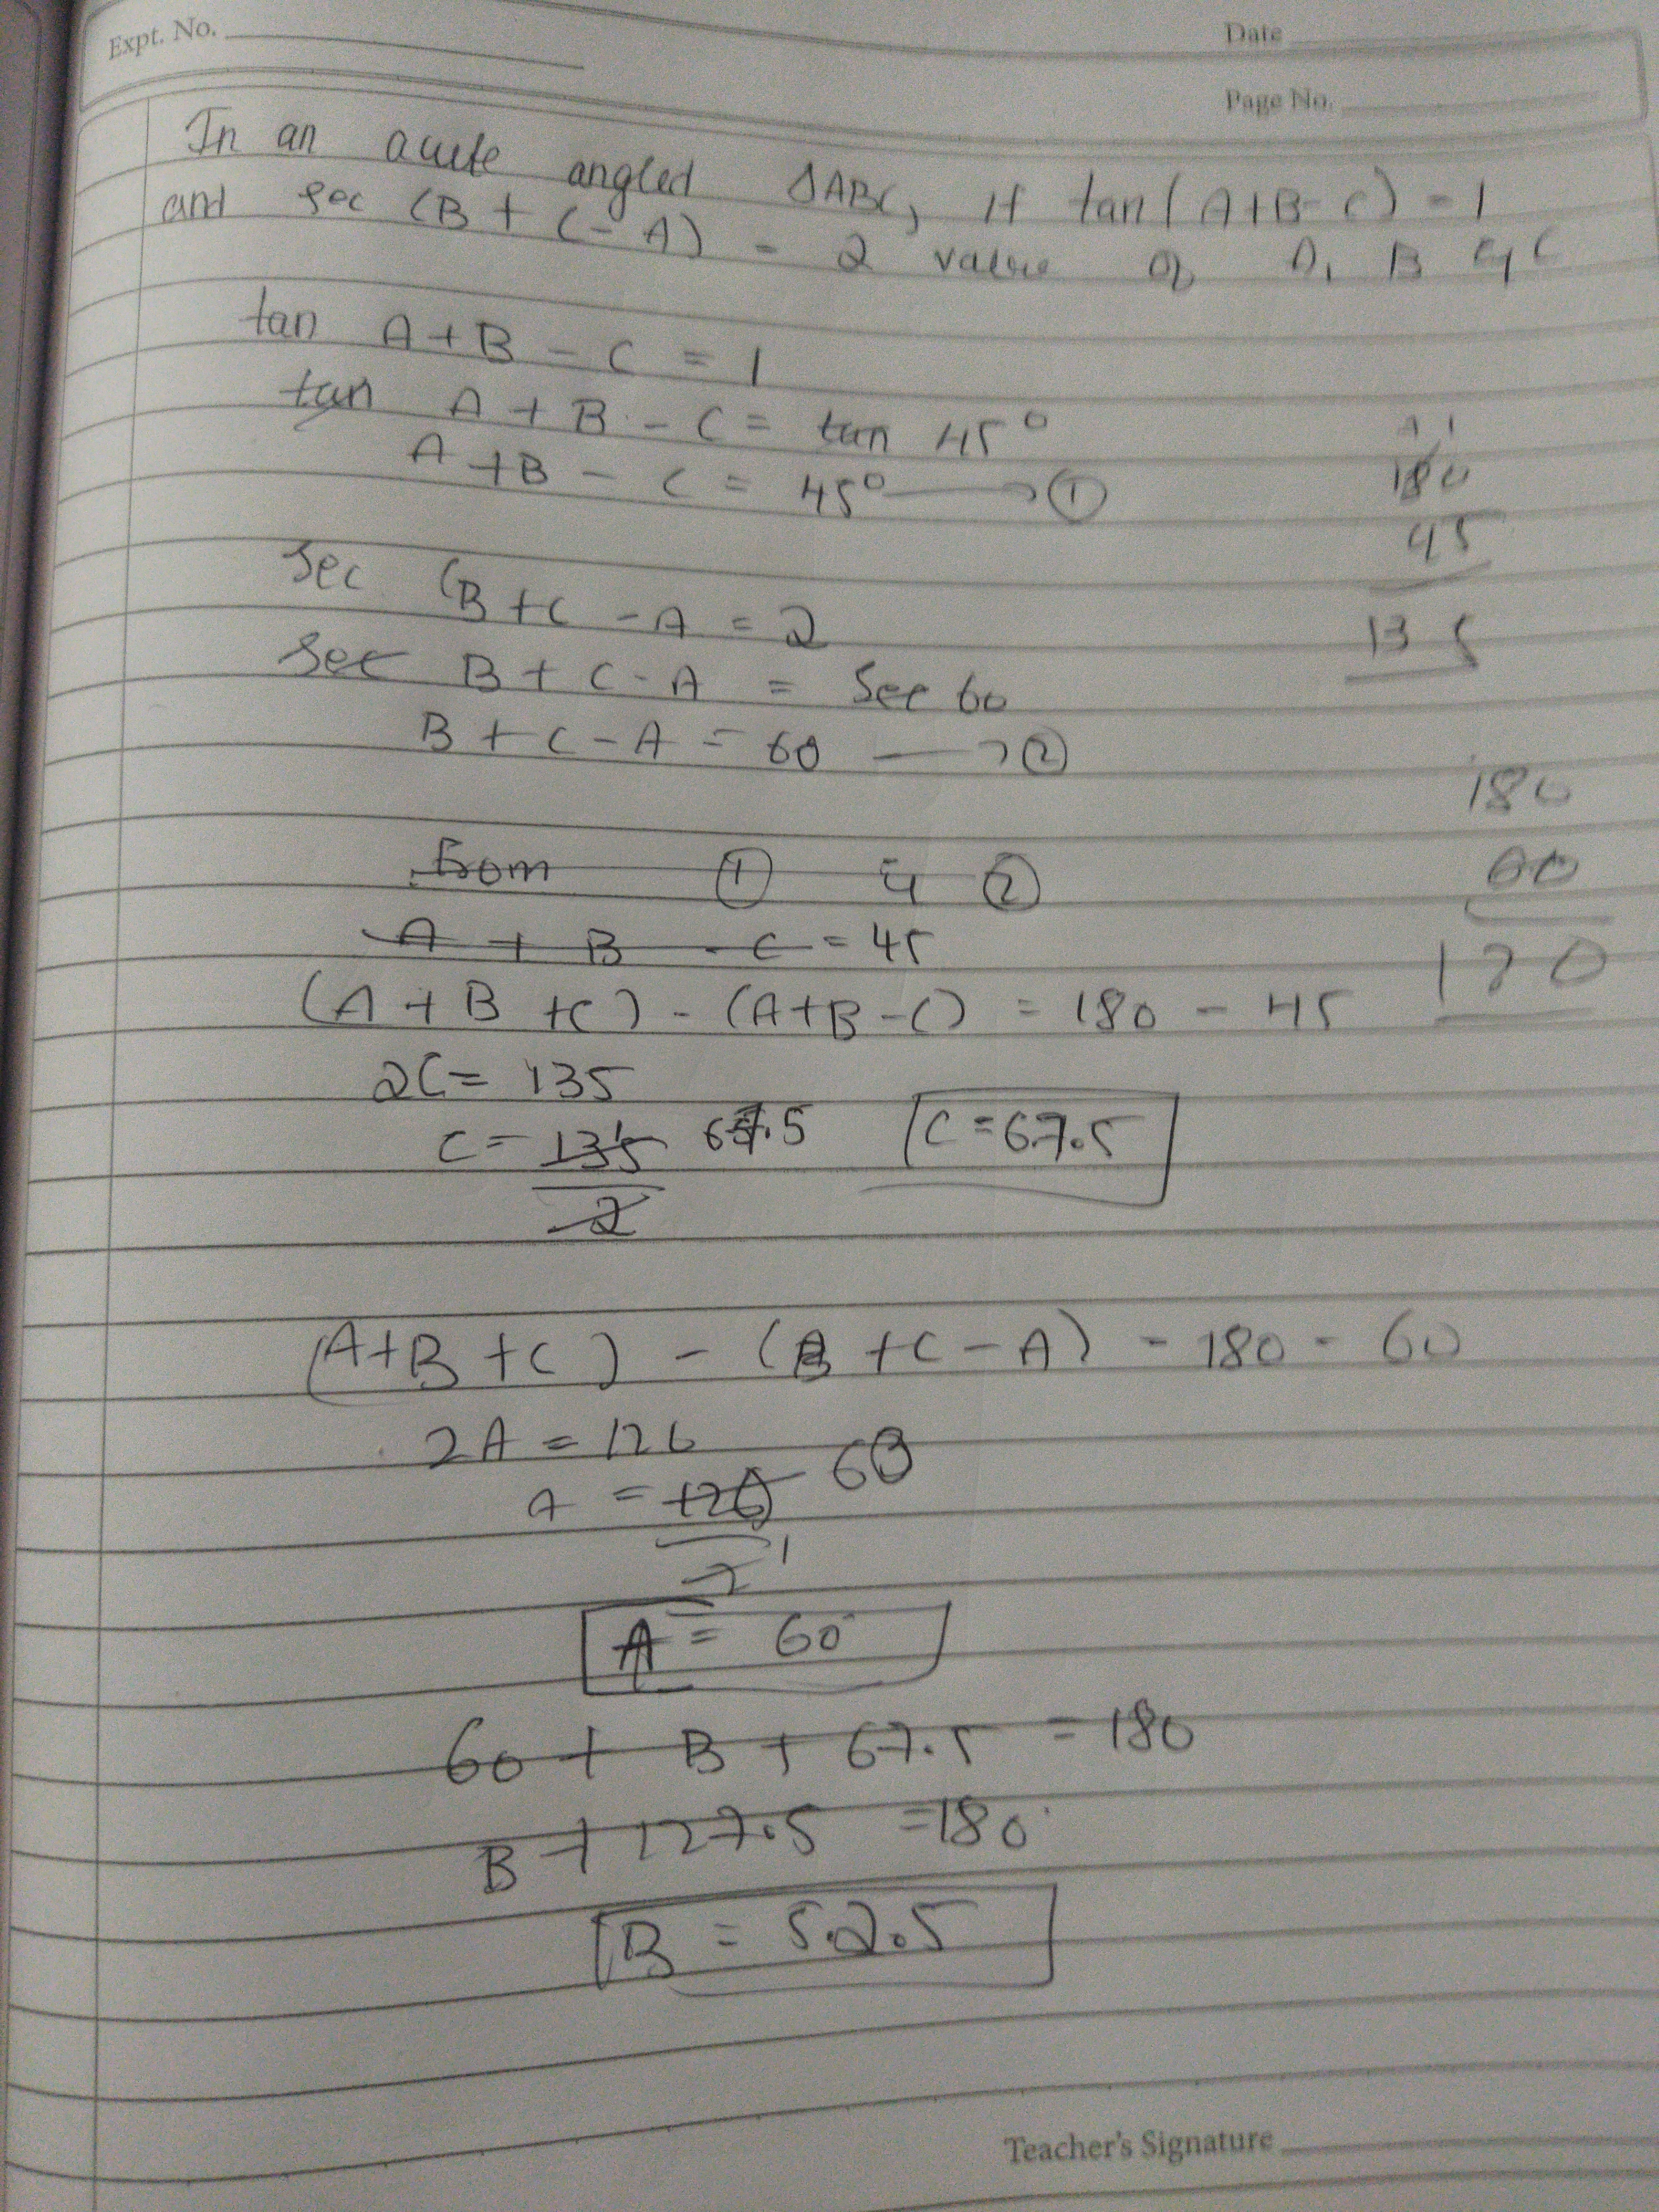 Expt. No.
Date
Page No.
In an acute angled ΔABC, if tan(A+B-C) = 1
and sec (B + C - A) = 2 value of A, B & C
tan A+B - C = 1
tan A + B - C = tan 45°
A +B - C = 45° → ①
180
45
135
Sec (B+C - A = 2
Sec B + C - A = Sec 60
B + C - A = 60 → ②
180
60
120
from ① & ②
A + B - C = 45
(A + B + C) - (A+B-C) = 180 - 45
2C = 135
C = 135 67.5
2
C = 67.5
(A+B +C) - (B +C - A) - 180 - 60
2A = 120
A = 120 60
2 1
A = 60
60 + B + 67.5 = 180
B + 127.5 = 180
B = 52.5
Teacher's Signature